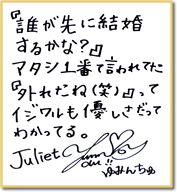 『誰が先に結婚
するかな?』
アタシ1番て言われてた
『外れたね(笑)』って
イジワルも優しさだって
わかってる。
Juliet
ゆみんちゅ